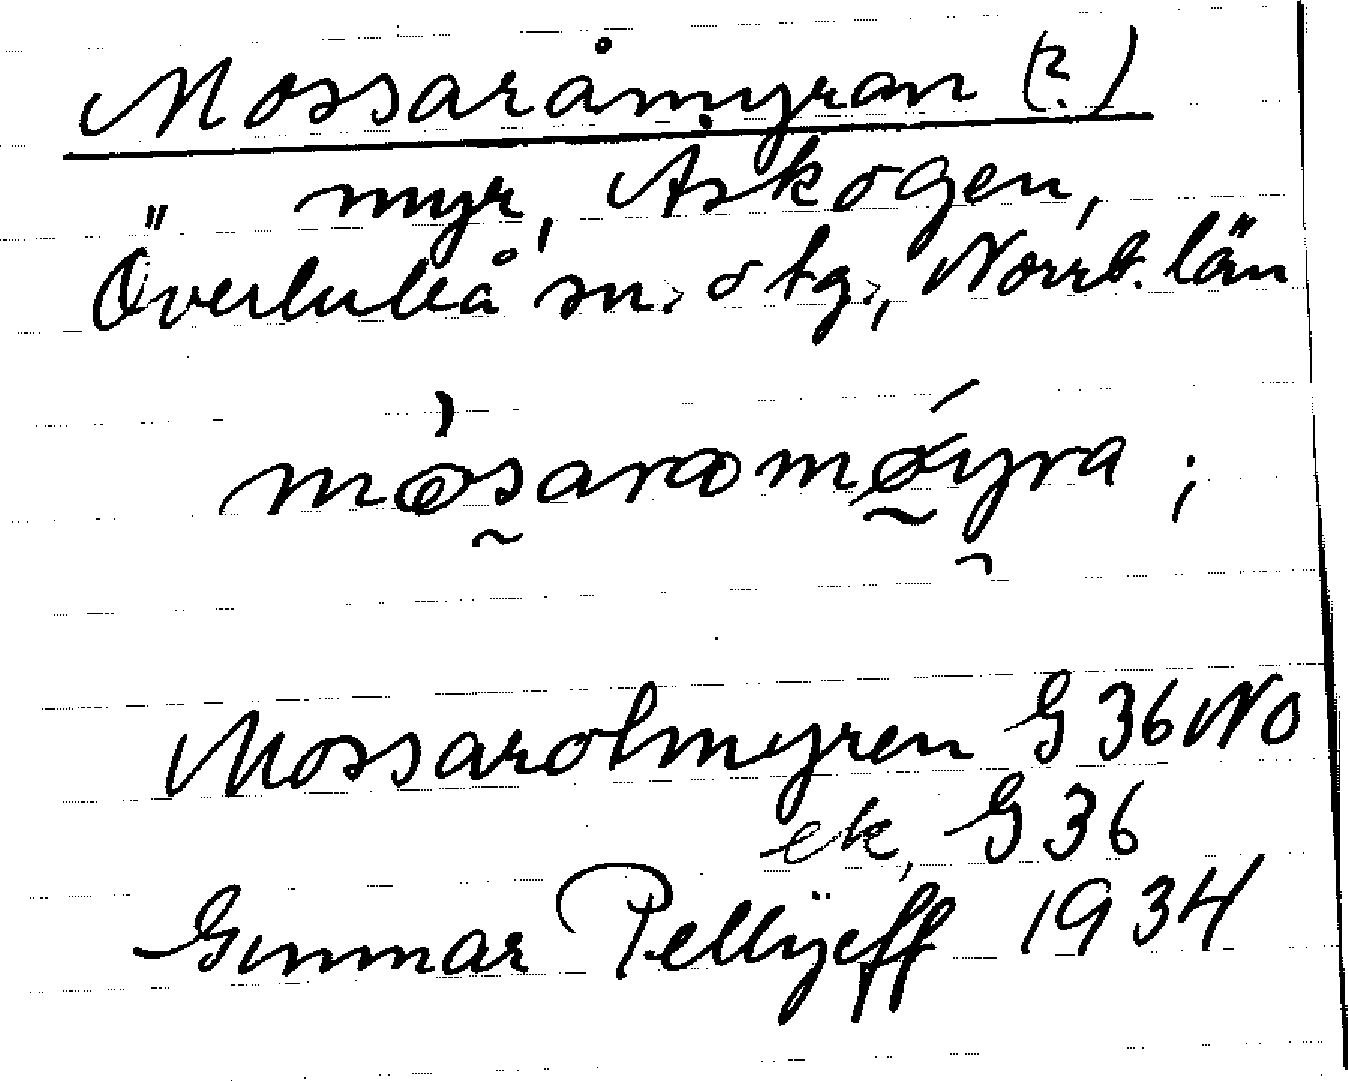 Mossaråmyran (?)
myr, Åskogen,
Överluleå sn. o tg., Norrb. län
mòsaromǿyra ;
Mossarolmyren G 36 NO
ek, G 36
Gunnar Pellijeff 1934